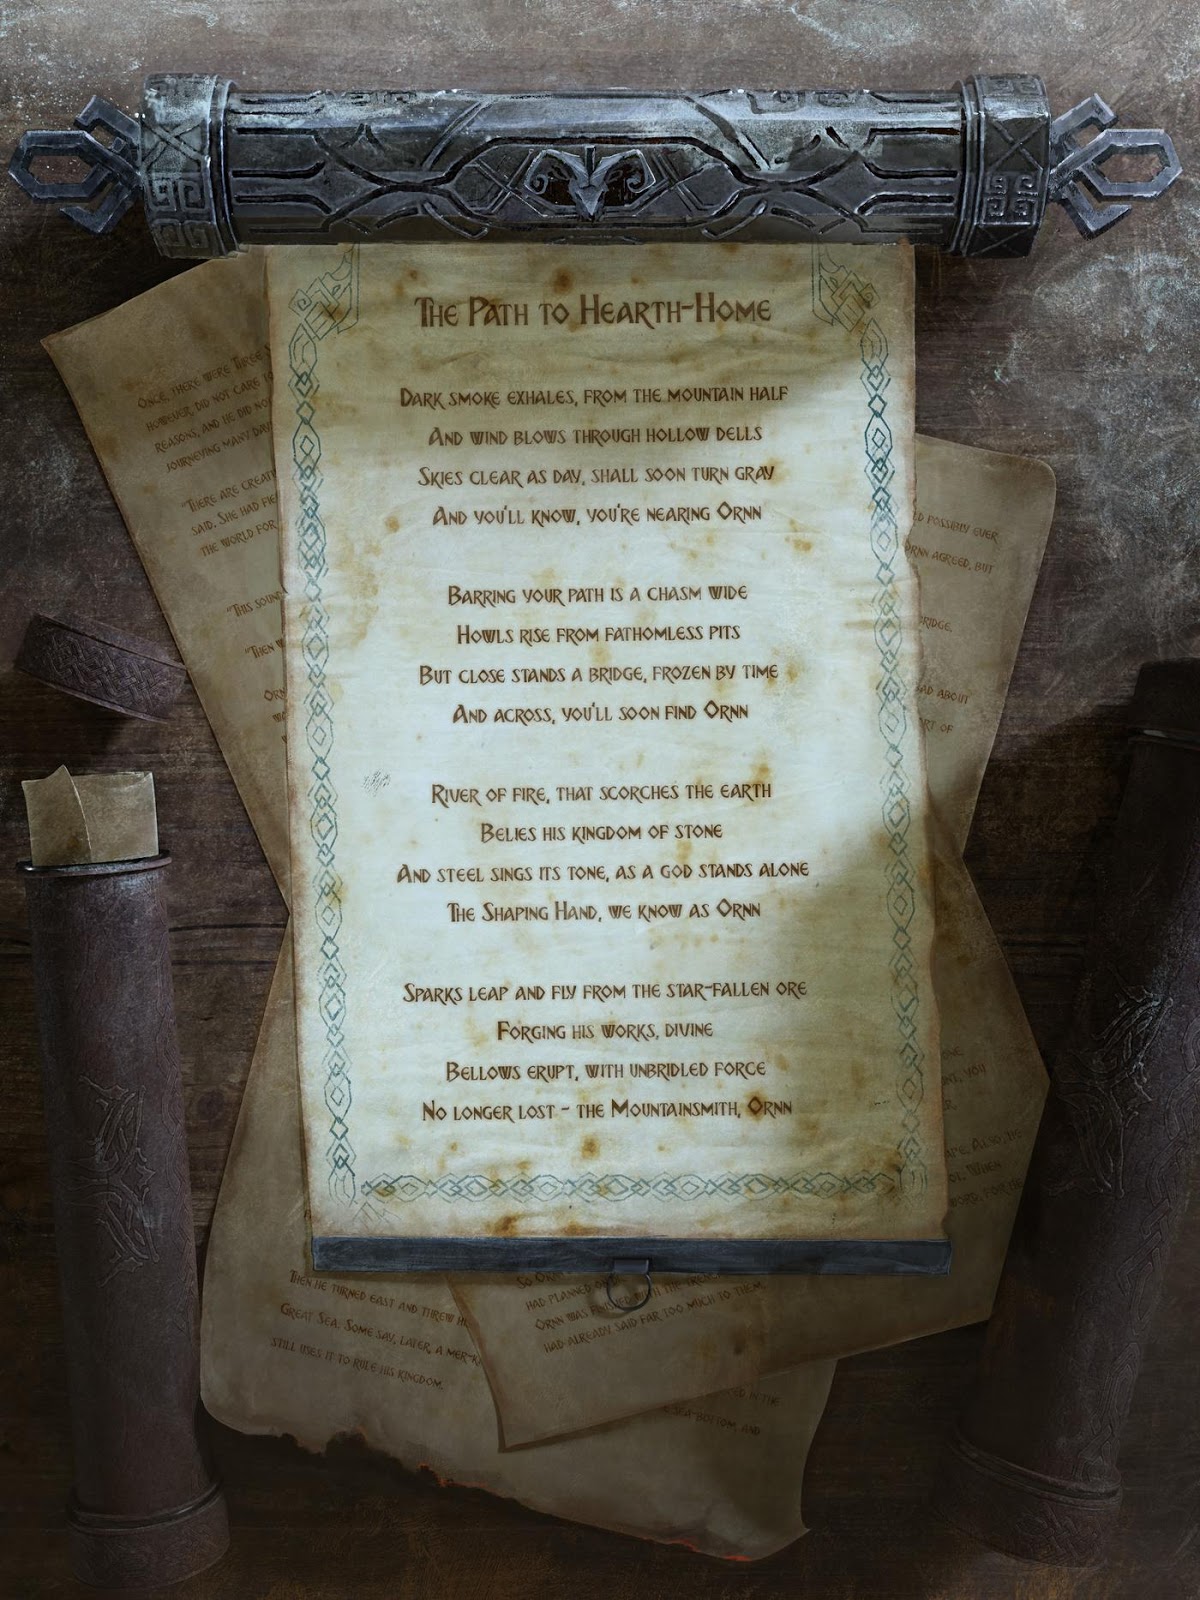 The Path to Hearth-Home
Dark smoke exhales, from the mountain half
And wind blows through hollow dells
Skies clear as day, shall soon turn gray
And you'll know, you're nearing Ornn
Barring your path is a chasm wide
Howls rise from fathomless pits
But close stands a bridge, frozen by time
And across, you'll soon find Ornn
River of fire, that scorches the earth
Belies his kingdom of stone
And steel sings its tone, as a god stands alone
The Shaping Hand, we know as Ornn
Sparks leap and fly from the star-fallen ore
Forging his works, divine
Bellows erupt, with unbridled force
No longer lost - the Mountainsmith, Ornn
Once, there were three
however, did not care
reasons, and he did not
journeying many
"There are
said. She had
the world for
"This
"Then
possibly ever
Ornn agreed, but
about
of
you
Also, he
When
Then he turned east and threw
Great Sea. Some say, later, a
still uses it to rule his kingdom.
So
had planned on
Ornn was finished with the
had already said far too much to them.
in the
sea-bottom, and